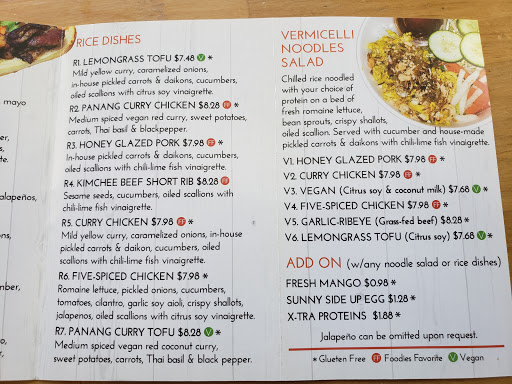 mayo
er,
s,
er,
.
alapeños,
ons,
mber,
es,
RICE DISHES
R1. LEMONGRASS TOFU $7.48 V *
Mild yellow curry, caramelized onions,
in-house pickled carrots & daikons, cucumbers,
oiled scallions with citrus soy vinaigrette.
R2. PANANG CURRY CHICKEN $8.28 FF *
Medium spiced vegan red curry, sweet potatoes,
carrots, Thai basil & blackpepper.
R3. HONEY GLAZED PORK $7.98 FF *
In-house pickled carrots & daikons, cucumbers,
oiled scallions with chili-lime fish vinaigrette.
R4. KIMCHEE BEEF SHORT RIB $8.28 FF
Sesame seeds, cucumbers, oiled scallions with
chili-lime fish vinaigrette.
R5. CURRY CHICKEN $7.98 FF *
Mild yellow curry, caramelized onions, in-house
pickled carrots & daikon, cucumbers, oiled
scallions with chili-lime fish vinaigrette.
R6. FIVE-SPICED CHICKEN $7.98 *
Romaine lettuce, pickled onions, cucumbers,
tomatoes, cilantro, garlic soy aioli, crispy shallots,
jalapenos, oiled scallions with citrus soy vinaigrette.
R7. PANANG CURRY TOFU $8.28 V *
Medium spiced vegan red coconut curry,
sweet potatoes, carrots, Thai basil & black pepper.
VERMICELLI
NOODLES
SALAD
Chilled rice noodled
with your choice of
protein on a bed of
fresh romaine lettuce,
bean sprouts, crispy shallots,
oiled scallion. Served with cucumber and house-made
pickled carrots & daikons with chili-lime fish vinaigrette.
V1. HONEY GLAZED PORK $7.98 FF *
V2. CURRY CHICKEN $7.98 FF *
V3. VEGAN (Citrus soy & coconut milk) $7.68 V *
V4. FIVE-SPICED CHICKEN $7.98 *
V5. GARLIC-RIBEYE (Grass-fed beef) $8.28 *
V6. LEMONGRASS TOFU (Citrus soy) $7.68 V *
ADD ON (w/any noodle salad or rice dishes)
FRESH MANGO $0.98 *
SUNNY SIDE UP EGG $1.28 *
X-TRA PROTEINS $1.88 *
Jalapeño can be omitted upon request.
* Glueten Free FF Foodies Favorite V Vegan